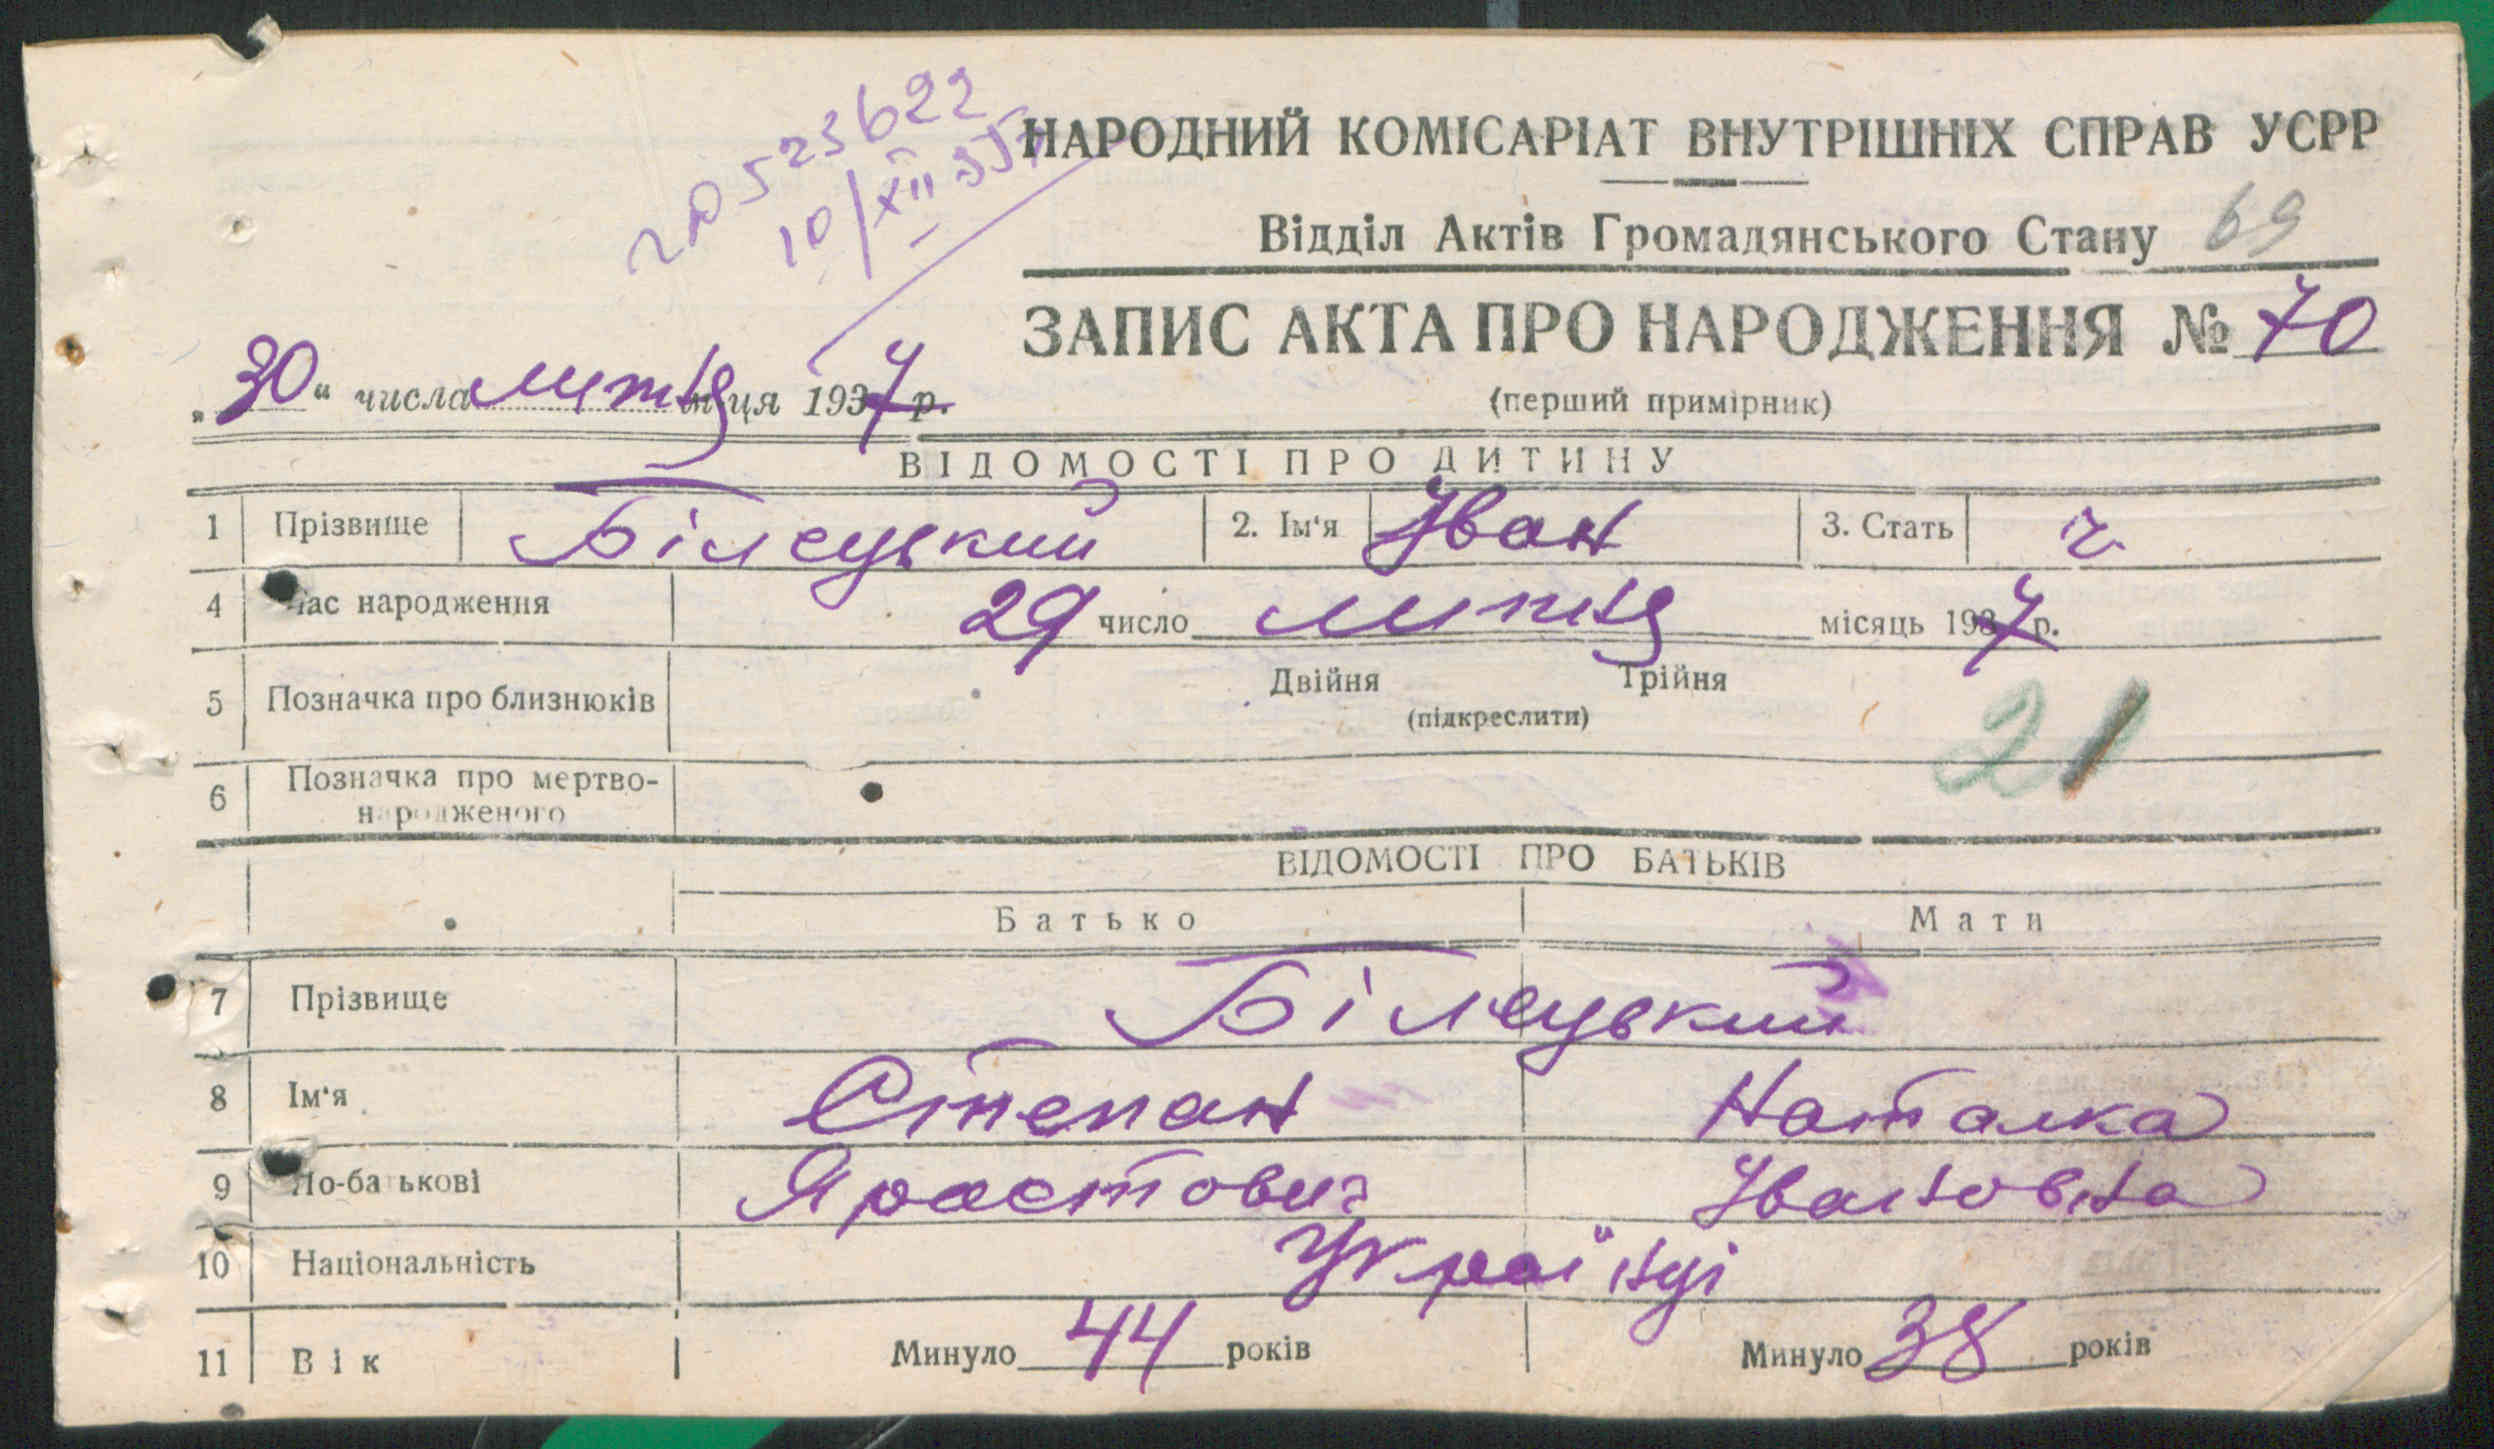 523622
10/XII
НАРОДНИЙ КОМІСАРІАТ ВНУТРІШНІХ СПРАВ УСРР
Відділ Актів Громадянського Стану 69
ЗАПИС АКТА ПРО НАРОДЖЕННЯ № 70
(перший примірник)
„30“ числа липня м-ця 1937 р.
ВІДОМОСТІ ПРО ДИТИНУ
1 Прізвище Білецький 2. Ім'я Іван 3. Стать ч
4 Час народження 29 число липня місяць 1937 р.
5 Позначка про близнюків Двійня Трійня
(підкреслити)
21
6 Позначка про мертво-
народженого
ВІДОМОСТІ ПРО БАТЬКІВ
Батько Мати
7 Прізвище Білецький
8 Ім'я Степан Наталка
9 По-батькові Ярастович Івановна
10 Національність Українці
11 Вік Минуло 44 років Минуло 38 років